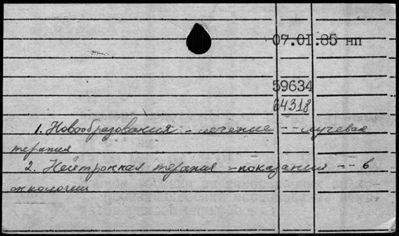 07.01.85 нп
59634
64318
1. Новообразования - лечение -- лучевая
терапия
2. Нейтронная терапия - показания -- в
онкологии